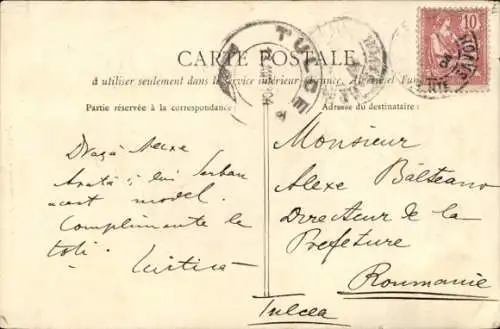 CARTE POSTALE
à utiliser seulement dans le service intérieur (France, Algérie et Tunisie)
Partie réservée à la correspondance
Adresse du destinataire
10
TULCEA
Dragă
Arată și lui Șerban
acest model.
Complimente la
toți.
Monsieur
Alexe Bălteanu
Directeur de la
Préfeture
Roumanie
Tulcea